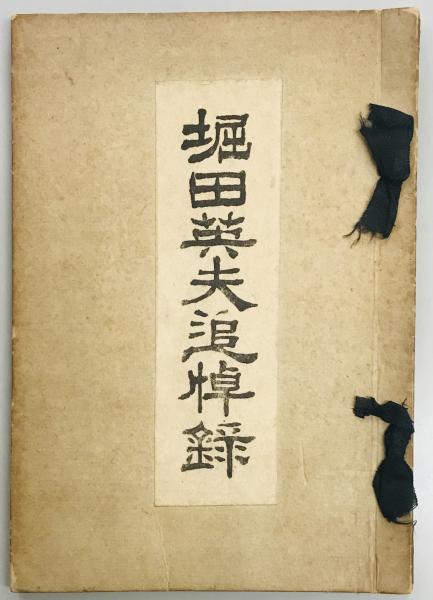 堀田英夫追悼錄